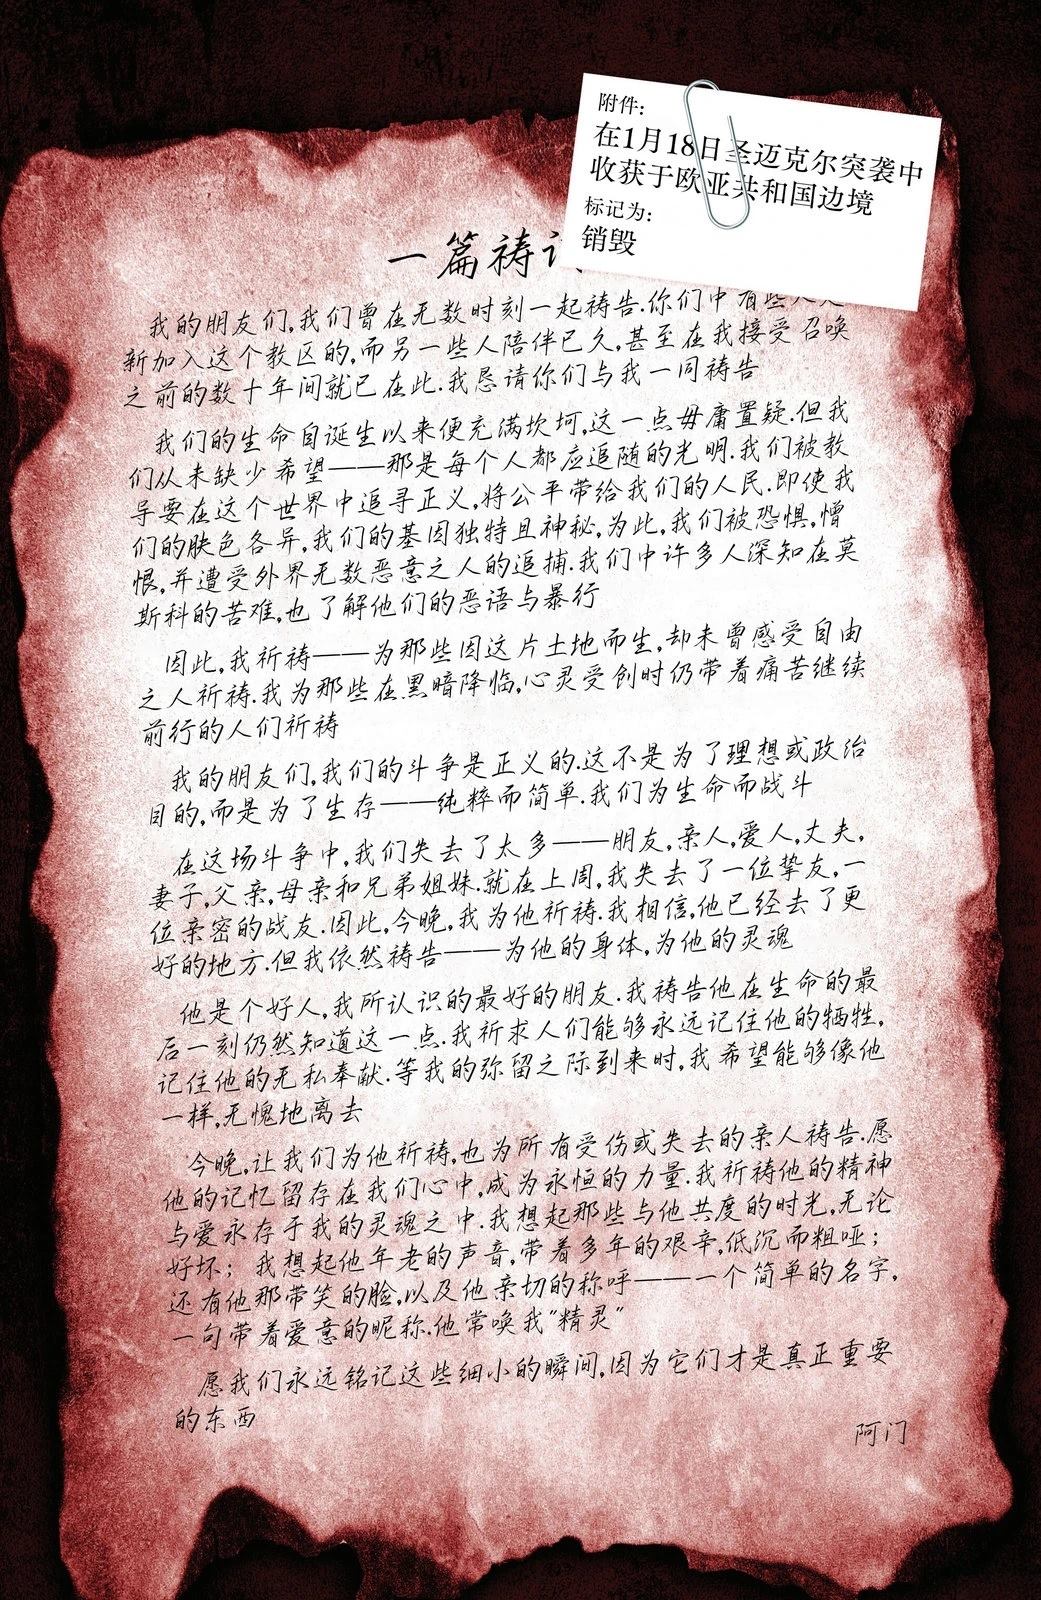 附件:
在1月18日圣迈克尔突袭中
收获于欧亚共和国边境
标记为:
销毁
一篇祷
我的朋友们,我们曾在无数时刻一起祷告.你们中有些人是
新加入这个教区的,而另一些人陪伴已久,甚至在我接受召唤
之前的数十年间就已在此.我恳请你们与我一同祷告
我们的生命自诞生以来便充满坎坷,这一点毋庸置疑.但我
们从未缺少希望——那是每个人都应追随的光明.我们被教
导要在这个世界中追寻正义,将公平带给我们的人民.即使我
们的肤色各异,我们的基因独特且神秘,为此,我们被恐惧,憎
恨,并遭受外界无数恶意之人的追捕.我们中许多人深知在莫
斯科的苦难,也了解他们的恶语与暴行
因此,我祈祷——为那些因这片土地而生,却未曾感受自由
之人祈祷.我为那些在黑暗降临,心灵受创时仍带着痛苦继续
前行的人们祈祷
我的朋友们,我们的斗争是正义的.这不是为了理想或政治
目的,而是为了生存——纯粹而简单.我们为生命而战斗
在这场斗争中,我们失去了太多——朋友,亲人,爱人,丈夫,
妻子,父亲,母亲和兄弟姐妹.就在上周,我失去了一位挚友,一
位亲密的战友.因此,今晚,我为他祈祷.我相信,他已经去了更
好的地方.但我依然祷告——为他的身体,为他的灵魂
他是个好人,我所认识的最好的朋友.我祷告他在生命的最
后一刻仍然知道这一点.我祈求人们能够永远记住他的牺牲,
记住他的无私奉献.等我的弥留之际到来时,我希望能够像他
一样,无愧地离去
今晚,让我们为他祈祷,也为所有受伤或失去的亲人祷告.愿
他的记忆留存在我们心中,成为永恒的力量.我祈祷他的精神
与爱永存于我的灵魂之中.我想起那些与他共度的时光,无论
好坏；我想起他年老的声音,带着多年的艰辛,低沉而粗哑；
还有他那带笑的脸,以及他亲切的称呼——一个简单的名字,
一句带着爱意的昵称.他常唤我"精灵"
愿我们永远铭记这些细小的瞬间,因为它们才是真正重要
的东西
阿门